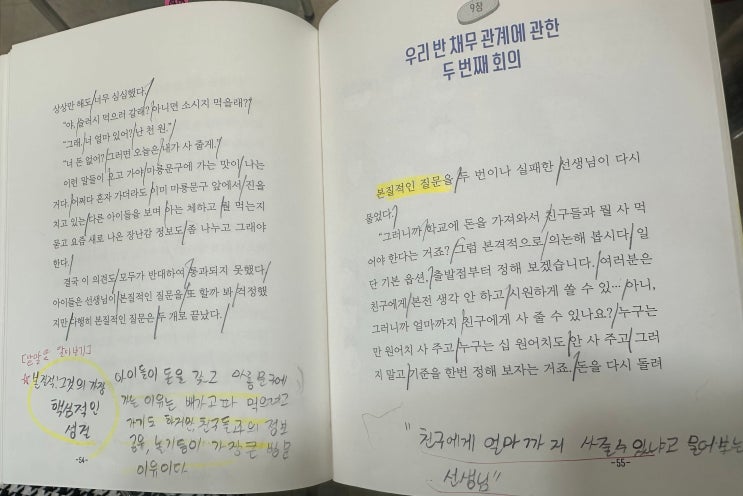 상상만 해도 너무 심심했다.
“야, 슬러시 먹으러 갈래? 아니면 소시지 먹을래?”
“그래, 너 얼마 있어? 난 천 원.”
“너 돈 없어? 그러면 오늘은 내가 사 줄게.”
이런 말들이 오고 가야 마룡문구에 가는 맛이 나는
거다. 어쩌다 혼자 가더라도 이미 마룡문구 앞에서 진을
치고 있는 다른 아이들을 보며 아는 체하고 뭘 먹는지
묻고 요즘 새로 나온 장난감 정보도 좀 나누고 그래야
한다.
결국 이 의견도 모두가 반대하여 통과되지 못했다.
아이들은 선생님이 본질적인 질문을 또 할까 봐 걱정했
지만 다행히 본질적인 질문은 두 개로 끝났다.
알아보기]
본질적: 그것의 가장
핵심적인
성질
아이들이 돈을 갖고 마룡문구에
가는 이유는 배가고파 먹으려고
가기도 하지만, 친구들과의 정보
공유, 놀기등이 가장 큰 방문
이유이다.
-54-
9장
우리 반 채무 관계에 관한
두 번째 회의
본질적인 질문을 두 번이나 실패한 선생님이 다시
물었다.
“그러니까 학교에 돈을 가져와서 친구들과 뭘 사 먹
어야 한다는 거죠? 그럼 본격적으로 의논해 봅시다. 일
단 기본 옵션, 출발점부터 정해 보겠습니다. 여러분은
친구에게 본전 생각 안 하고 시원하게 쓸 수 있… 아니,
그러니까 얼마까지 친구에게 사 줄 수 있나요? 누구는
만 원어치 사 주고 누구는 십 원어치도 안 사 주고 그러
지 말고 기준을 한번 정해 보자는 거죠. 돈을 다시 돌려
"친구에게 얼마까지 사줄수 있냐고 물어보는
선생님"
-55-